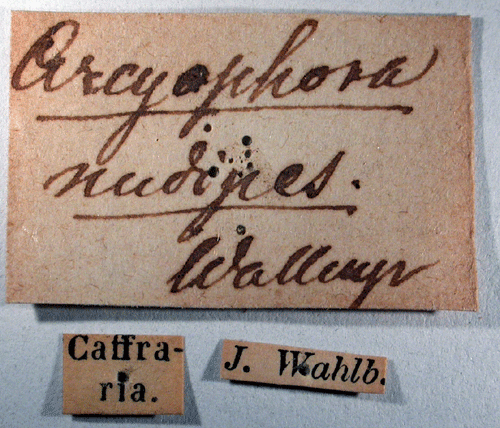 Arcyophora
nudipes.
Wallengr
Caffra-
ria.
J. Wahlb.